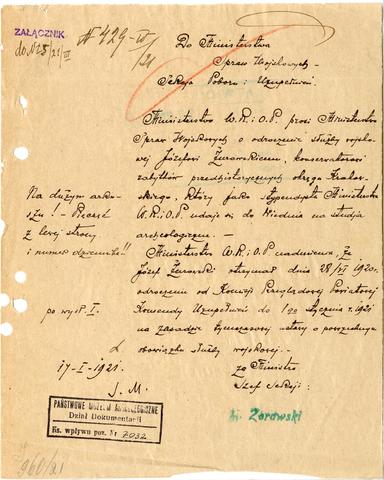 ZAŁĄCZNIK
do Nr 25/21/III
N 429-IV/21
Do Ministerstwa
Spraw Wojskowych
Sekcja Poboru i Uzupełnień
Ministerstwo W.R.i O.P. prosi Ministerstwo
Spraw Wojskowych o odroczenie służby wojsko-
wej Józefowi Żurowskiemu, konserwatorowi
zabytków przedhistorycznych okręgu Krakow-
skiego, który jako stypendysta Ministerstwa
W.R.i O.P. udaje się do Wiednia na studja
archeologiczne.-
Ministerstwo W.R.i O.P. nadmienia, że
Józef Żurowski otrzymał dnia 28/VI 1920.
odroczenie od Komisji Przeglądowej Powiatowej
Komendy Uzupełnień do 1go stycznia r. 1921
na zasadzie tymczasowej ustawy o powszechnym
obowiązku służby wojskowej.-
za Ministra
Szef Sekcji:
Na dużym arku-
szu! - Pieczęć
z lewej strony
i numer dziennika!!
po wysł. I.
17-I-1921.
J. M.
PAŃSTWOWE MUZEUM ARCHEOLOGICZNE
Dział Dokumentacji
Ks. wpływu poz. Nr 7032
Żorowski
960/21